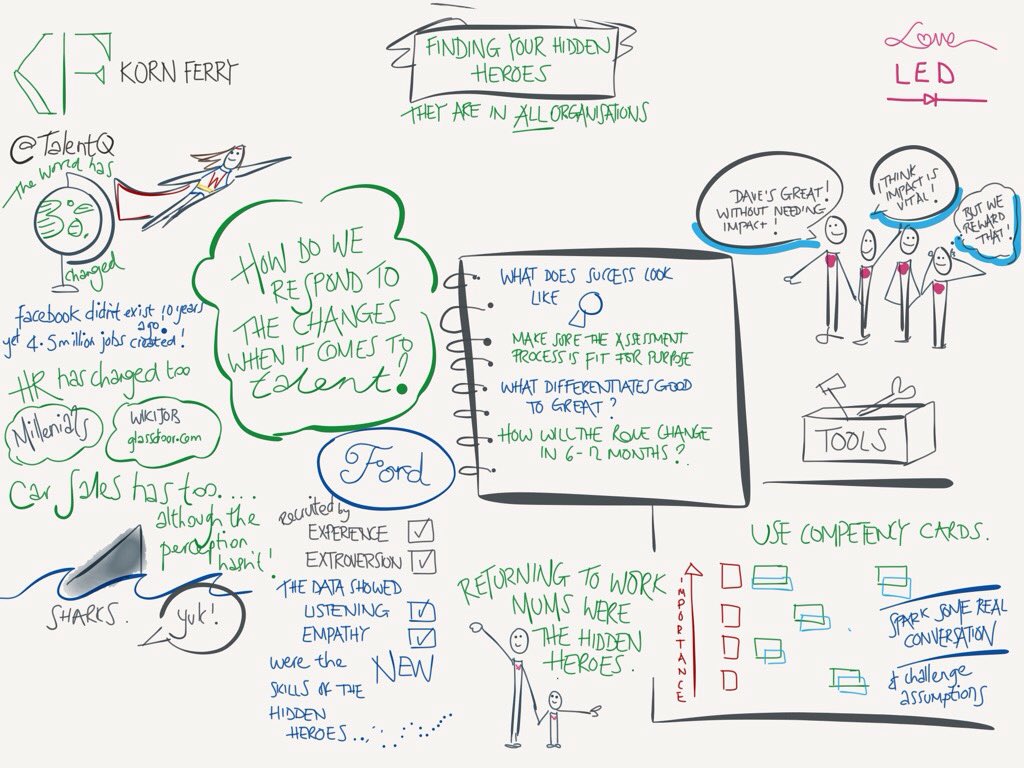 KF KORN FERRY
@TalentQ
FINDING YOUR HIDDEN
HEROES
THEY ARE IN ALL ORGANISATIONS
Love
LED
The world has
changed
W
facebook didn't exist 10 years
ago.
yet 4.5 million jobs created!
HR has changed too
Millenials
WIKIJOB
glassdoor.com
Car Sales has too....
although the
perception
hasn't!
SHARKS.
yuk!
HOW DO WE
RESPOND TO
THE CHANGES
WHEN IT COMES TO
talent?
WHAT DOES SUCCESS LOOK
LIKE
MAKE SURE THE ASSESSMENT
PROCESS IS FIT FOR PURPOSE
WHAT DIFFERENTIATES GOOD
TO GREAT?
HOW WILL THE ROLE CHANGE
IN 6-12 MONTHS?
DAVE'S GREAT!
WITHOUT NEEDING
IMPACT!
I THINK
IMPACT IS
VITAL!
BUT WE
REWARD
THAT!
TOOLS
Ford
recruited by
EXPERIENCE
EXTROVERSION
THE DATA SHOWED
LISTENING
EMPATHY
were the NEW
SKILLS OF THE
HIDDEN
HEROES...
RETURNING TO WORK
MUMS WERE
THE HIDDEN
HEROES.
USE COMPETENCY CARDS.
IMPORTANCE
SPARK SOME REAL
CONVERSATION
& challenge
assumptions